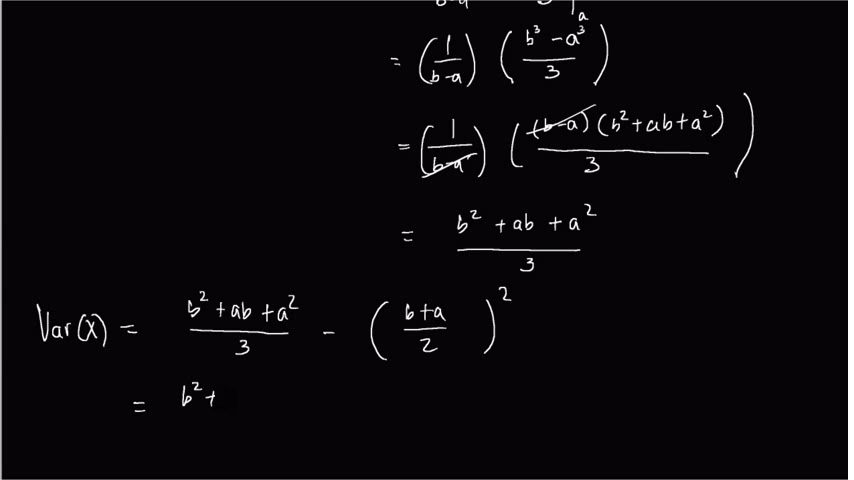 a
= (1/(b-a)) ((b³ - a³)/3)
= (1/(b-a)) ((b-a)(b² + ab + a²)/3)
= (b² + ab + a²)/3
Var(X) = (b² + ab + a²)/3 - ((b+a)/2)²
= b² +